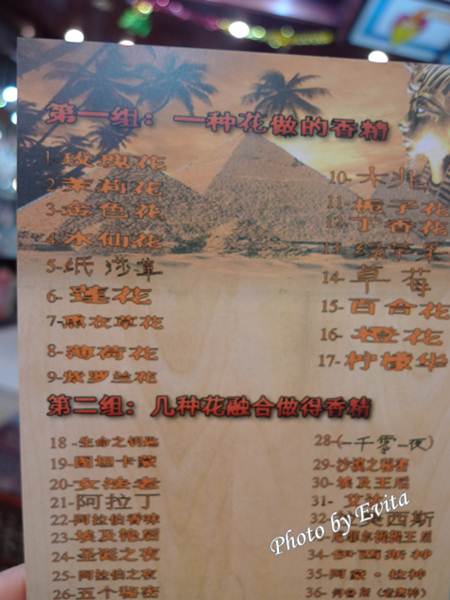 第一组：一种花做的香精
1玫瑰花
2-茉莉花
3-金色花
4-水仙花
5-纸莎草
6-莲花
7-熏衣草花
8-薄荷花
9-紫罗兰花
10-木兰
11-栀子花
12-丁香花
13-
14-草莓
15-百合花
16-橙花
17-柠檬华
第二组：几种花融合做得香精
18-生命之钥匙
19-图坦卡蒙
20-女法老
21-阿拉丁
22-阿拉伯香味
23-埃及艳后
24-圣诞之夜
25-阿拉伯之夜
26-五个秘密
28-(一千零一夜)
29-沙漠之秘密
30-埃及王后
31-
32-
王后
34-伊西斯神
35-阿蒙·拉神
36-
Photo by Evita